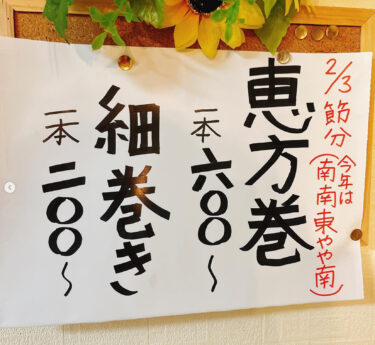 2/3 節分
今年は
(南南東やや南)
恵方巻
一本 六〇〇〜
細巻き
一本 二〇〇〜